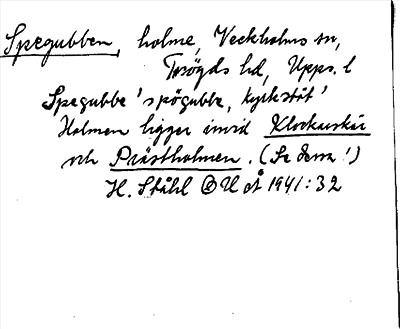 Spegubben, holme, Veckholms sn,
Trögds hd, Upps. l
Spegubbe 'spögubbe, kyrkstöt'
Holmen ligger invid Klockarskär
och Prästholmen. (Se dessa!)
H. Ståhl OUÅ 1941:32